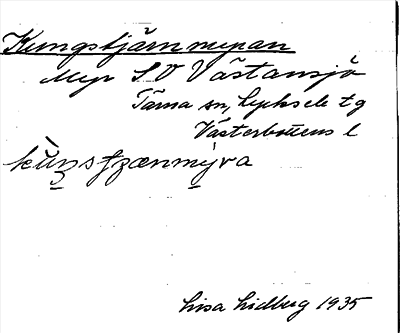 Kungstjärnmyran
Myr S.O Västansjö
Tärna sn, Lycksele tg
Västerbottens l
Lisa Lidberg 1935